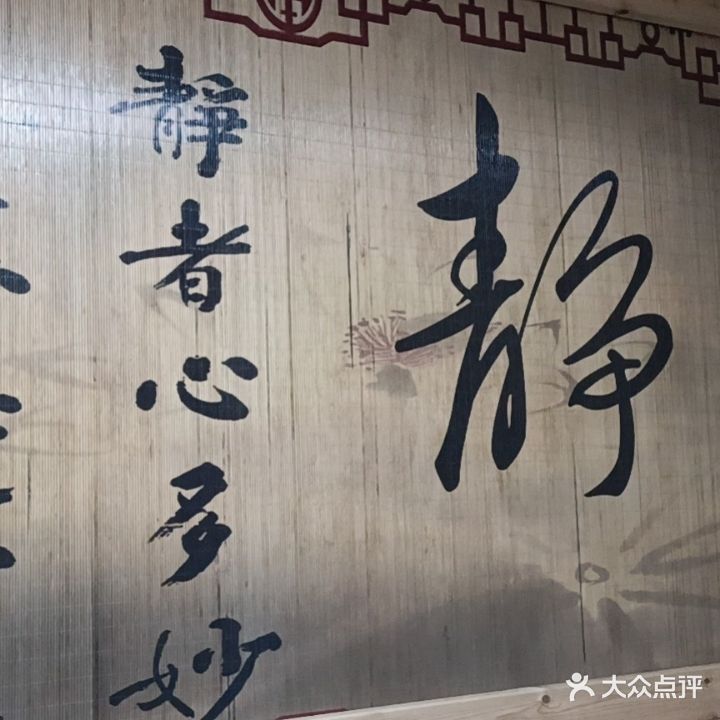 静
靜者心多妙
大众点评